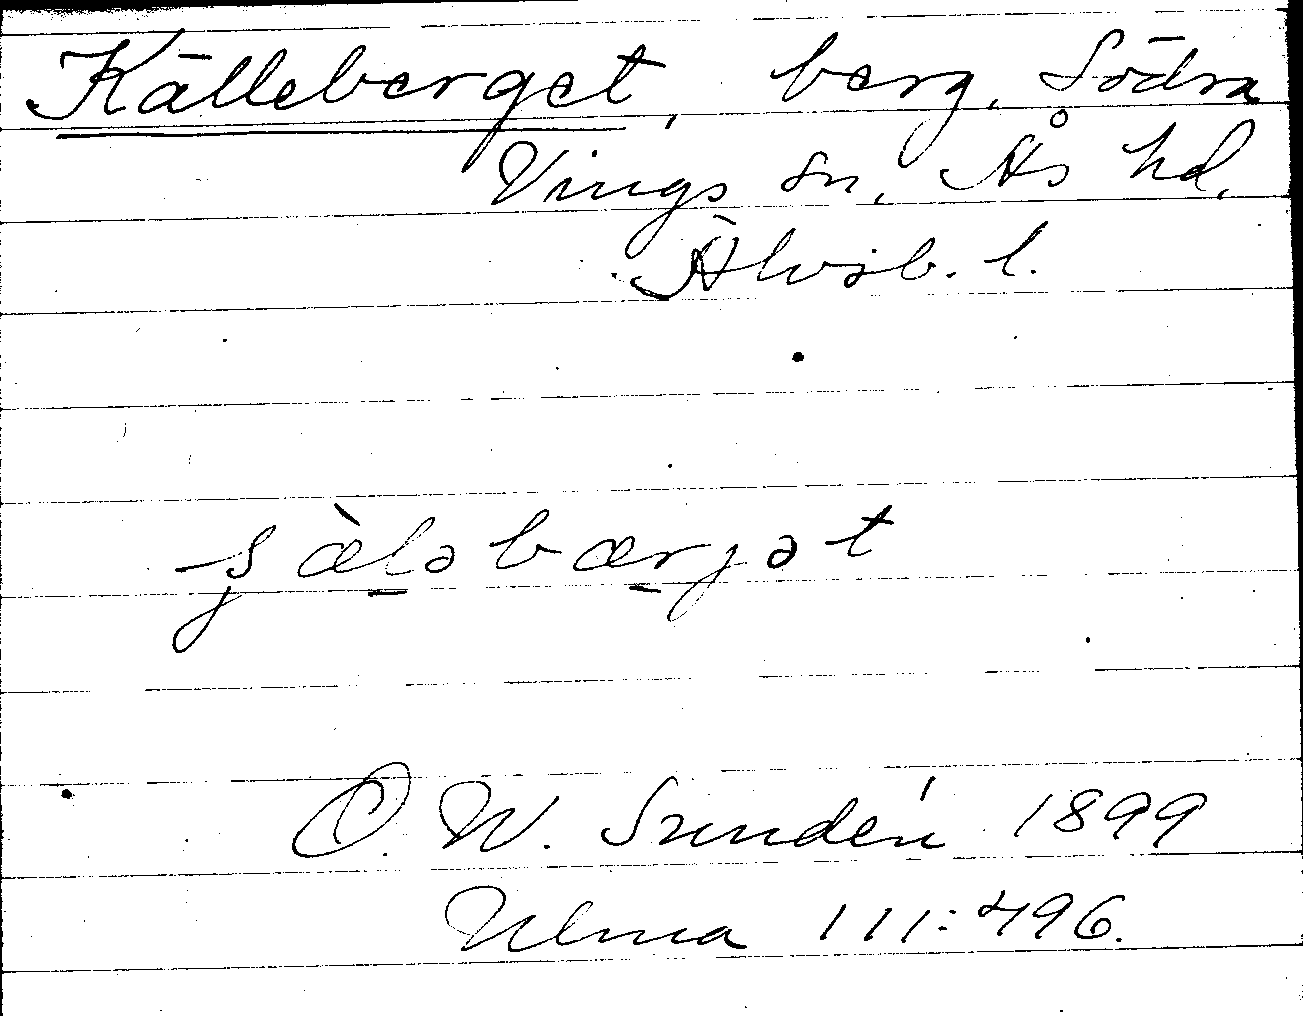 Källeberget, berg, Södra
Vings sn, Ås hd.
Älvsb. l.
ʂæ̀ləbærjət
O. W. Sundén 1899
Ulma 111:496.